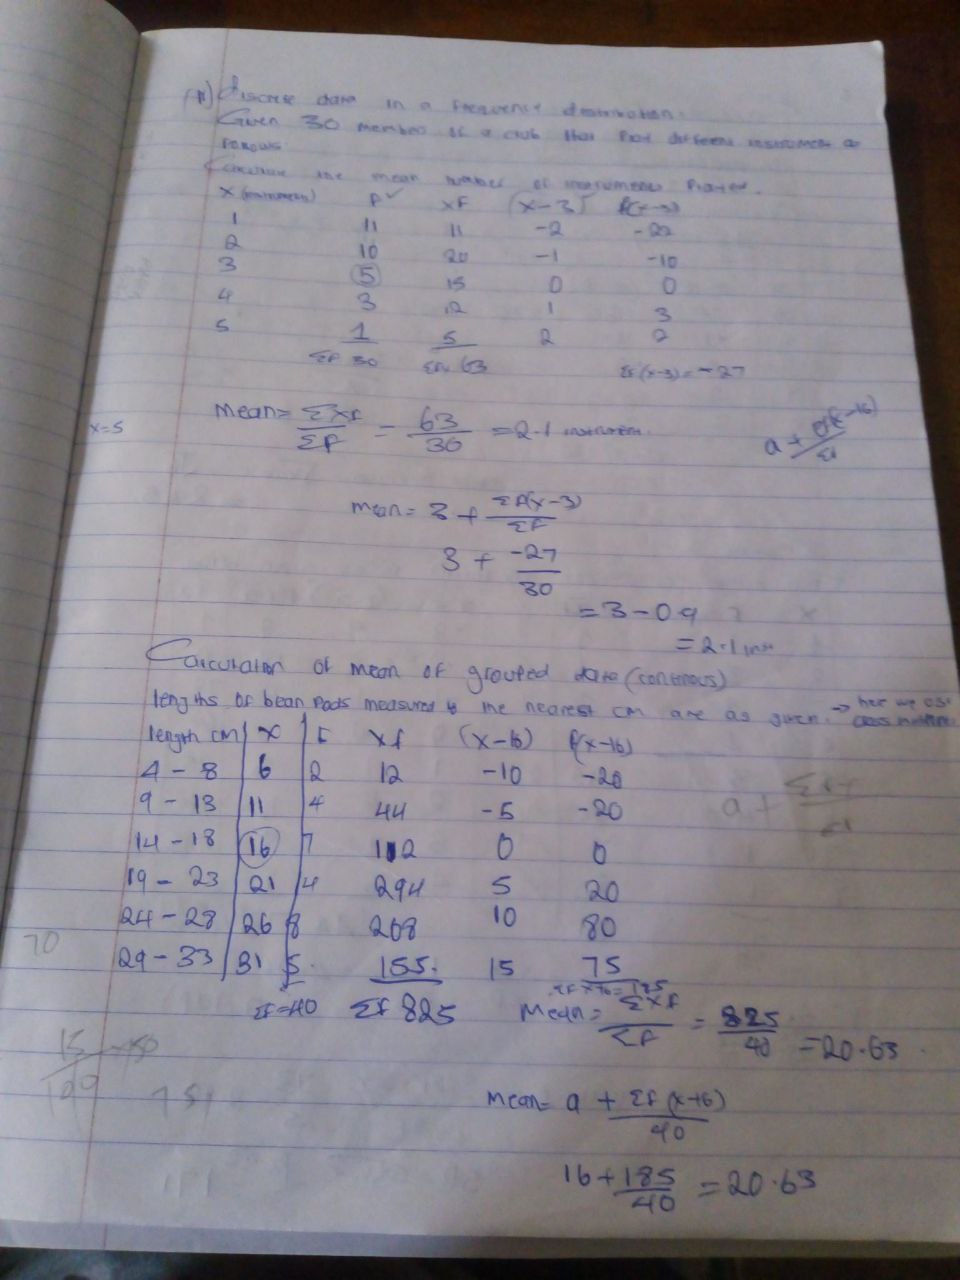 Discrete data in a frequency distribution.
Given 30 members of a club that play different instruments as
follows
Calculate the mean number of instruments played.
x (instrument) f ✓ xf (x-3) f(x-3)
1 11 11 -2 -22
2 10 20 -1 -10
3 5 15 0 0
4 3 12 1 3
5 1 5 2 2
Σf 30 Σfx 63 Σf(x-3) = -27
x=5
mean = Σxf/Σf = 63/30 = 2.1 instrument.
mean = 3 + Σf(x-3)/Σf
3 + -27/30
= 3 - 0.9
= 2.1 inst
Calculation of mean of grouped data (continous)
lengths of bean pods measured to the nearest cm are as given. → here we use
class
length cm x f xf (x-16) f(x-16)
4 - 8 6 2 12 -10 -20
9 - 13 11 4 44 -5 -20
14 - 18 16 7 112 0 0
19 - 23 21 4 294 5 20
24 - 28 26 8 208 10 80
29 - 33 31 5 155 15 75
Σf=40 Σf 825
70
Mean = Σxf/Σf = 825/40 = 20.63
mean = a + Σf(x+6)/40
16 + 185/40 = 20.63